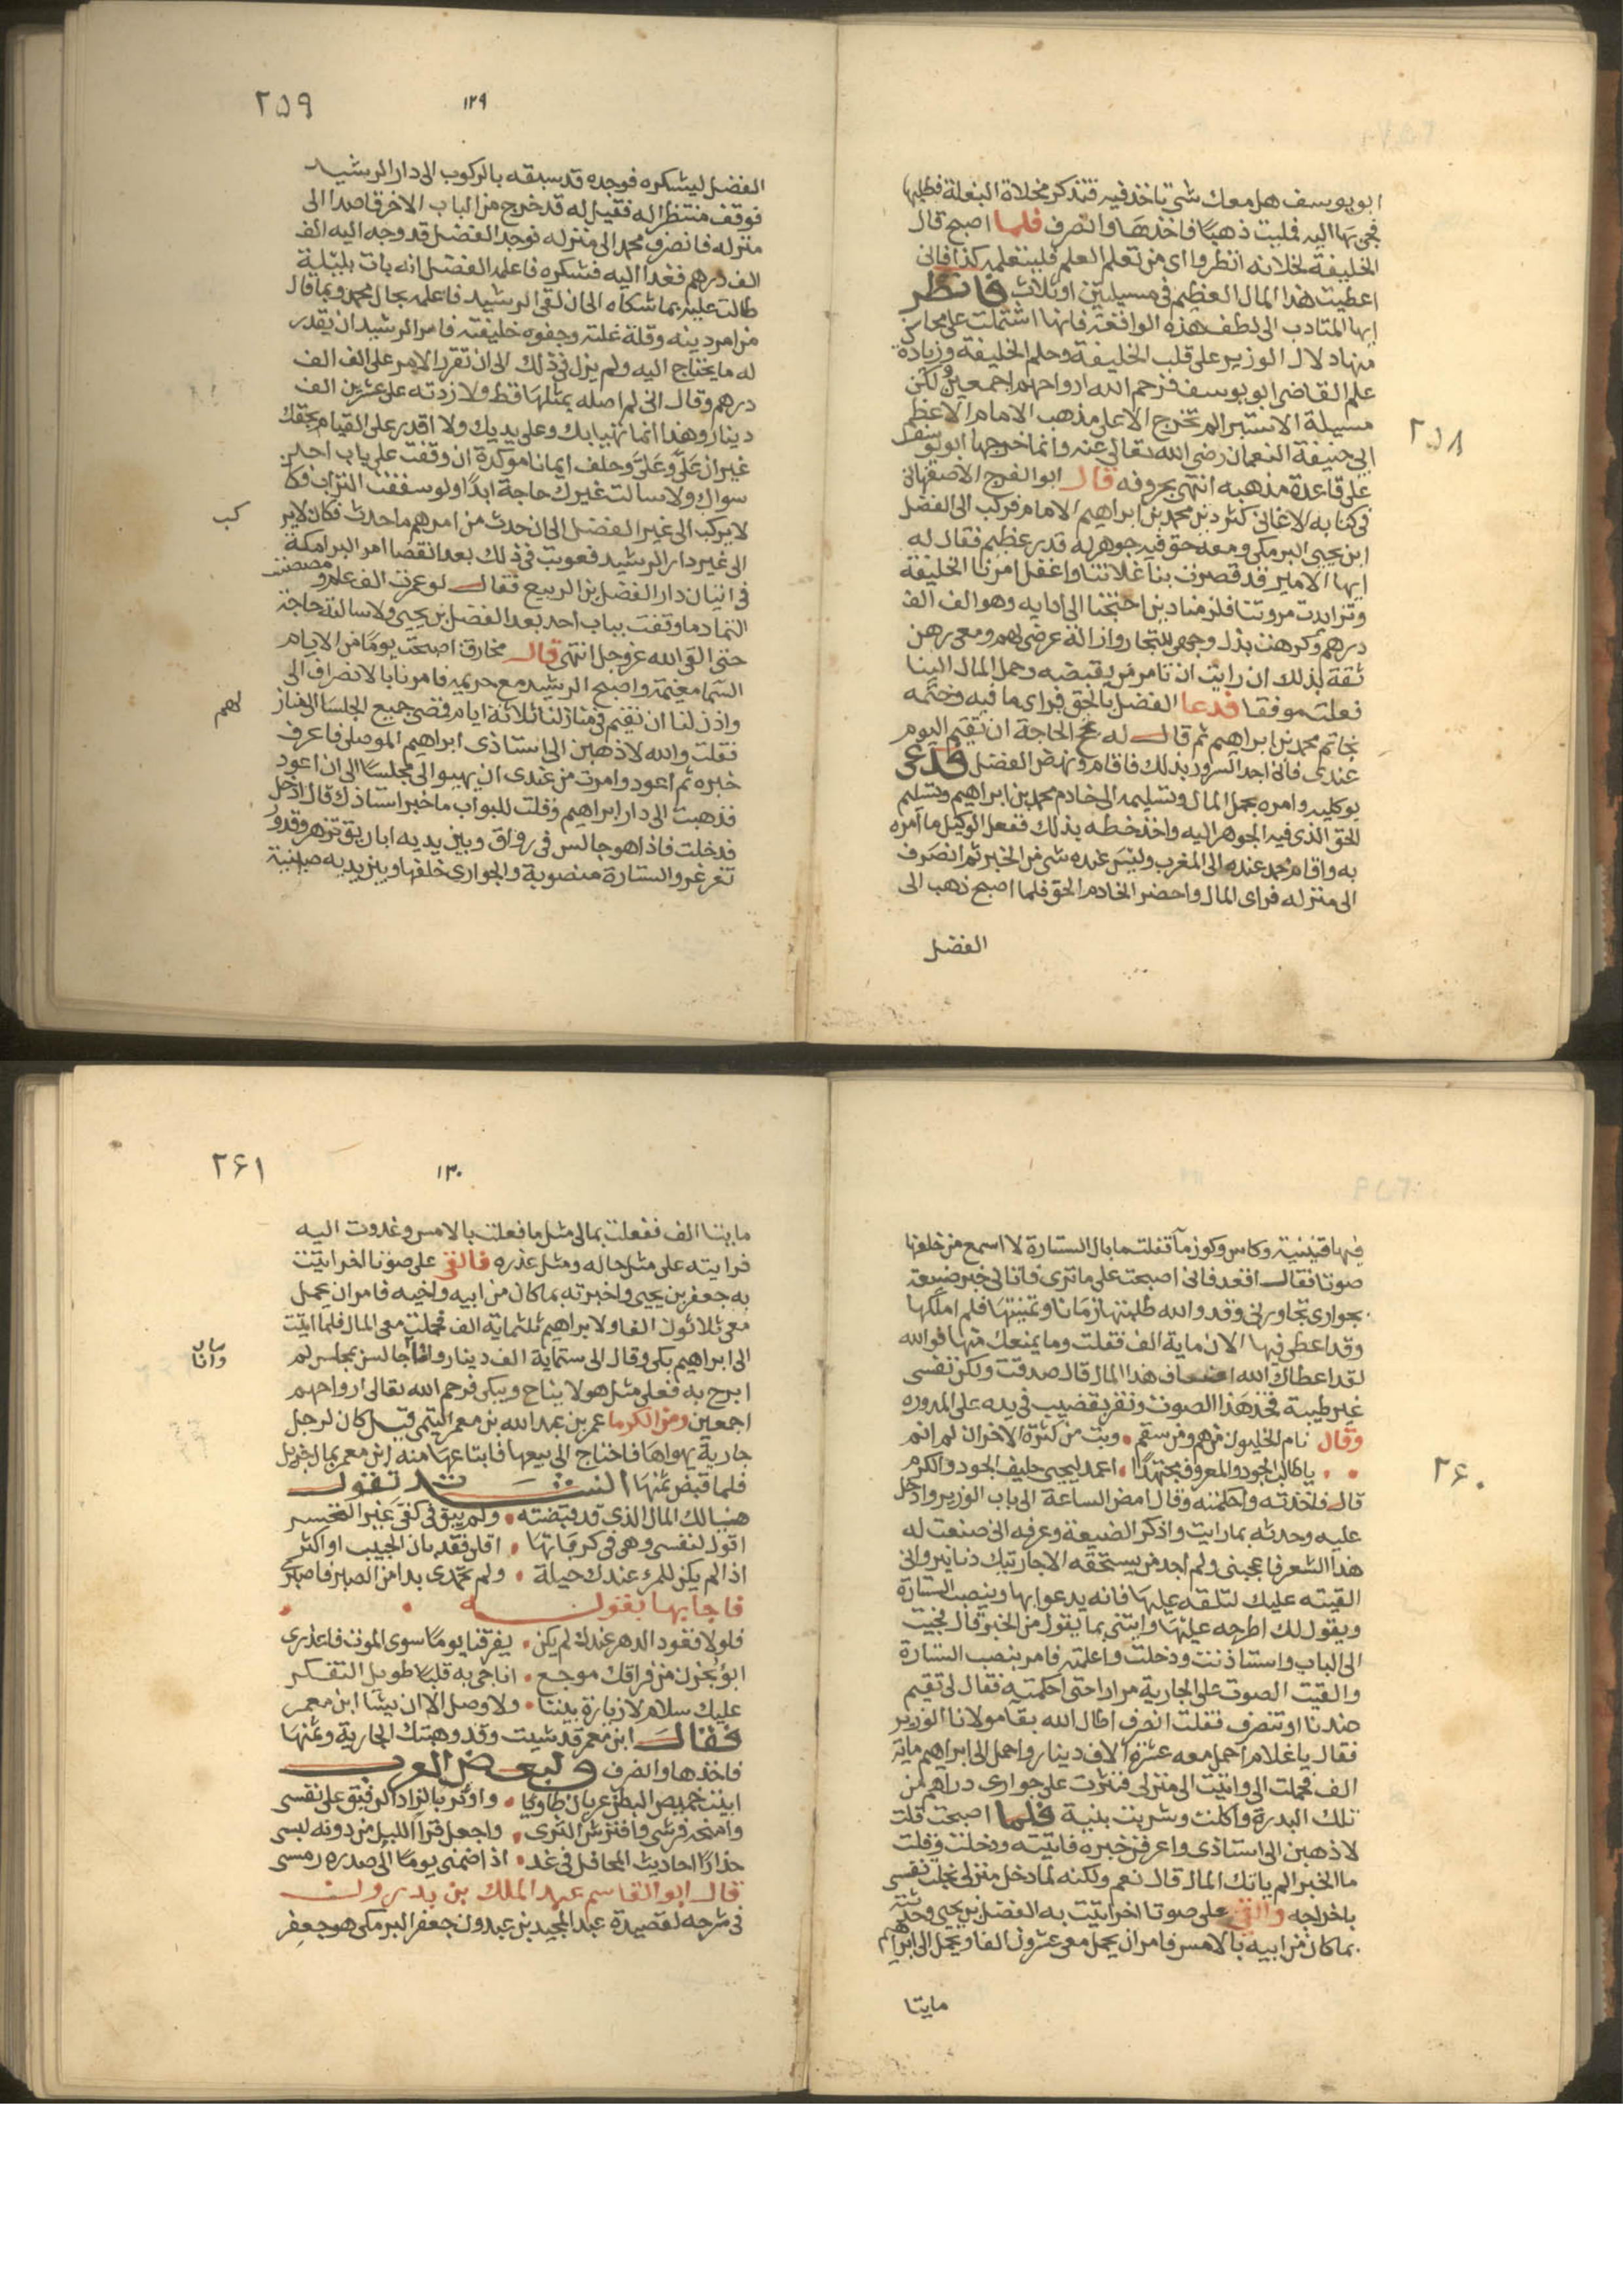 ابو يوسف هل معك شي تاخذ فيه فتذكر مخلاة البغلة فطلبها
فجي بها اليه فمليت ذهبا فاخذها وانصرف فلما اصبح قال
الخليفة لخلانه انظروا اي من تعلم العلم فليتعلم كذا فاني
اعطيت هذا المال العظيم في مسيلتين او ثلاث فانظر
ايها المتادب الى لطف هذه الواقعة فانها اشتملت على محاسن
منها دلال الوزير على قلب الخليفة وحلم الخليفة وزيادة
علم القاضي ابو يوسف فرحم الله ارواحهم اجمعين ولكن
مسيلة الاستبرا لم تخرج الا على مذهب الامام الاعظم
٢٥٨
ابي حنيفة النعمان رضي الله تعالى عنه وانما خرجها ابو يوسف
على قاعدة مذهبه انتهى بحروفه قال ابو الفرج الاصفهاني
في كتابه الاغاني كثر دين محمد بن ابراهيم الامام فركب الى الفضل
ابن يحيى البرمكي ومعه حق فيه جوهر له قدر عظيم فقال له
ايها الامير قد قصرت بنا غلاتنا واغفل امرنا الخليفة
وتزايدت مروتنا فلزمنا دين احتجنا الى ادايه وهو الف الف
درهم وكرهت بذل وجهي للتجار واذالة عرضي لهم ومعي رهن
ثقة بذلك ان رايت ان تامر من يقبضه وحمل المال الينا
فعلت موفقا فدعا الفضل بالحق فراى ما فيه وختمه
بخاتم محمد بن ابراهيم ثم قال له نجح الحاجة ان تقيم اليوم
عندي فاني اجد السرور بذلك فاقام ونهض الفضل فدعى
بوكليه وامره بحمل المال وتسليمه الى خادم محمد بن ابراهيم وتسليم
الحق الذي فيه الجوهر اليه واخذ خطه بذلك ففعل الوكيل ما امره
به واقام محمد عنده الى المغرب وليس عنده شي من الخبر ثم انصرف
الى منزله فراى المال واحضر الخادم الحق فلما اصبح ذهب الى
الفضل
١٢٩
٢٥٩
الفضل ليشكره فوجده قد سبقه بالركوب الى دار الرشيد
فوقف منتظرا له فقيل له قد خرج من الباب الاخر قاصدا الى
منزله فانصرف محمد الى منزله فوجد الفضل قد وجه اليه الف
الف درهم فغدا اليه فشكره فاعلمه الفضل انه بات بليلة
طالت عليه بما شكاه الى ان لقي الرشيد فاعلمه بحال محمد وبما قال
من امر دينه وقلة غلته وجفوه خليفته فامر الرشيد ان يقدر
له ما يحتاج اليه ولم يزل في ذلك الى ان تقرر الامر على الف الف
درهم وقال اني لم اصله بمثلها قط ولا زدته على عشرين الف
دينار وهذا انما تم ببابك وعلى يديك ولا اقدر على القيام بحقك
غير ان علي وعلي وحلف ايمانا موكدة ان وقفت على باب احد
سواك ولا سالت غيرك حاجة ابدا ولو سففت التراب فكا
لا يركب الى غير الفضل الى ان حدث من امرهم ما حدث فكان لا ير
كب
الى غير دار الرشيد فعوتب في ذلك بعد انقضا امر البرامكة
في اتيان دار الفضل بن الربيع فقال لو عمرت الف عام ومصصت
الثماد ما وقفت بباب احد بعد الفضل بن يحيى ولا سالته حاجة
حتى القى الله عز وجل انتهى قال مخارق اصبحت يوما من الايام
السما مغيمة واصبح الرشيد مع حريمه فامرنا بالانصراف الى
واذن لنا ان نقيم في منازلنا ثلاثة ايام فمضى جميع الجلسا الى مناز
لهم
فقلت والله لاذهبن الى استاذي ابراهيم الموصلي فاعرف
خبره ثم اعود وامرت من عندي ان يهيوا الي مجلسا الى ان اعود
فذهبت الى دار ابراهيم وقلت للبواب ما خبر استاذك قال ادخل
فدخلت فاذا هو جالس في رواق وبين يديه اباريق تزهر وقدور
تغرغر والستارة منصوبة والجواري خلفها وبين يديه صينية
فيها قنينة وكاس وكوز ما فقلت ما بال الستارة لا اسمع من خلفها
صوتا فقال اقعد فاني اصبحت على ما ترى فاتاني خبر ضيعة
بجواري تجاورني وقد والله طلبتها زمانا وتمنيتها فلم املكها
وقد اعطي فيها الان ماية الف فقلت وما يمنعك منها فوالله
لقد اعطاك الله اضعاف هذا المال قال صدقت ولكن نفسي
غير طيبة فخذ هذا الصوت ونقر بقضيب في يده على المدوره
وقال نام الخليون من هم ومن سقم وبت من كثرة الاحزان لم انم
٢٦٠
يا طالب الجود والمعروف مجتهدا اعمد ليحيى حليف الجود والكرم
قال فاخذته واحكمته وقال امض الساعة الى باب الوزير وادخل
عليه وحدثه بما رايت واذكر الضيعة وعرفه اني صنعت له
هذا الشعر فاعجبني ولم اجد من يستحقه الا جاريتك دنانير واني
القيته عليك لتلقه عليها فانه يدعوا بها وينصب الستارة
ويقول لك اطرحه عليها وايتني بما يقول من الخبر قال فجيت
الى الباب واستاذنت ودخلت واعلمته فامر بنصب الستارة
والقيت الصوت على الجارية مرارا حتى احكمته فقال لي تقيم
عندنا او تنصرف فقلت انصرف اطال الله بقا مولانا الوزير
فقال يا غلام احمل معه عشرة الاف دينار واحمل الى ابراهيم ماية
الف فحملت الي واتيت الى منزلي فنثرت على جواري دراهم من
تلك البدرة واكلت وشربت بنية فلما اصبحت قلت
لاذهبن الى استاذي واعرفن خبره فاتيته ودخلت وقلت
ما الخبر الم ياتك المال قال نعم ولكنه لما دخل منزلي بخلت نفسي
باخراجه والقى علي صوتا اخر اتيت به الفضل بن يحيى وحدثته
بما كان من ابيه بالامس فامر ان يحمل معي عشرون الفا ويحمل الى ابراهيم
مايتا
١٣٠
٢٦١
مايتا الف ففعلت بمالي مثل ما فعلت بالامس وغدوت اليه
فرايته على مثل حاله ومثل عذره فالقى علي صوتا اخر اتيت
به جعفر بن يحيى واخبرته بما كان من ابيه واخيه فامر ان يحمل
معي ثلاثون الفا ولابراهيم ثلثماية الف فحملت معي المال فلما اتيت
الى ابراهيم بكى وقال الى ستماية الف دينار وانا جالس بمجلس لم
مال
وانا
ابرح به فعلى مثل هولا يناح ويبكى فرحم الله تعالى ارواحهم
اجمعين ومن الكرما عمر بن عبد الله بن معمر التيمي قيل كان لرجل
جارية يهواها فاحتاج الى بيعها فابتاعها منه ابن معمر بمال جزيل
فلما قبض ثمنها انشدت تقول
هنيا لك المال الذي قد قبضته ولم يبق في كفي غير التحسر
اقول لنفسي وهي في كرباتها اقلي فقد بان الحبيب او اكثري
اذا لم يكن للمر عندك حيلة ولم تجدي بدا من الصبر فاصبري
فاجابها بقوله
فلولا قعود الدهر عندك لم يكن يفرقنا يوما سوى الموت فاعذري
ابو بحزن من فراقك موجع اناجي به قلبا طويل التفكر
عليك سلام لا زيارة بيننا ولا وصل الا ان يشا ابن معمر
فقال ابن معمر قد شيت وقد وهبتك الجارية وثمنها
فاخذها وانصرف ولبعض العرب
ابيت خميص البطن عريان طاويا واوثر بالزاد الرفيق على نفسي
وامنحه فرشي وافترش الثرى واجعل قر الليل من دونه لبسي
حذارا احاديث المحافل في غد اذا ضمني يوما الى صدره رمسي
قال ابو القاسم عبد الملك بن بدرون
في شرحه لقصيدة عبد المجيد بن عبدون جعفر البرمكي هو جعفر